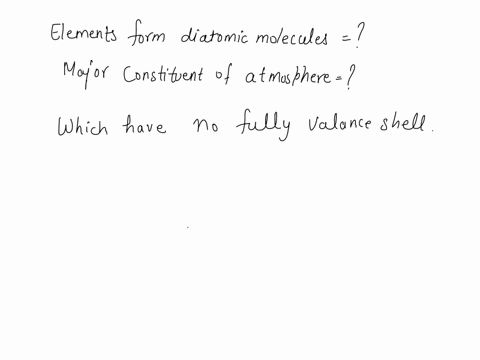 Elements form diatomic molecules = ?
Major Constituent of atmosphere = ?
Which have no fully valance shell.